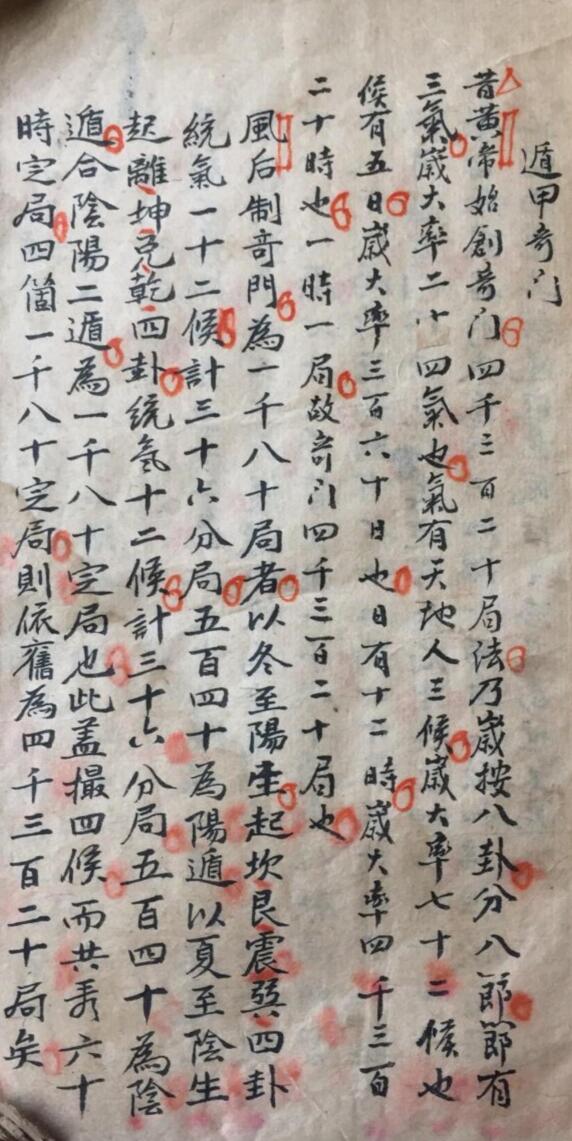 遁甲奇门
昔黃帝始創奇门四千三百二十局法乃歲按八卦分八節節有
三氣歲大率二十四氣也氣有天地人三候歲大率七十二候也
候有五日歲大率三百六十日也日有十二時歲大率四千三百
二十時也一時一局故奇门四千三百二十局也
風后制奇門為一千八十局者以冬至陽生起坎艮震巽四卦
統氣一十二候計三十六分局五百四十為陽遁以夏至陰生
起離坤兌乾四卦統氣十二候計三十六分局五百四十為陰
遁合陰陽二遁為一千八十定局也此蓋撮四候而共秀六十
時定局四箇一千八十定局則依舊為四千三百二十局矣